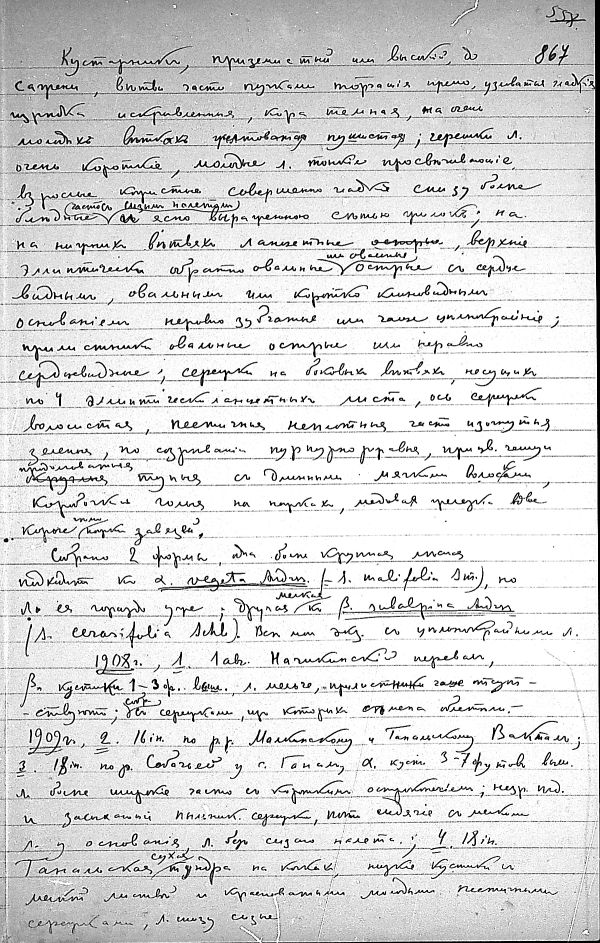 557
867
Кустарникъ, приземистый или высокiй, до
сажени, вѣтви часто пучками торчащiя прямо, узловатыя гладкiя
изрѣдка искривленныя, кора темная, на очень
молодыхъ вѣткахъ желтоватая пушистая; черешки л.
очень короткiе, молодые л. тонкiе просвѣчивающiе,
взрослые кожистые совершенно гладкiе снизу болѣе
блѣдные часто съ сизымъ налетомъ и ясно выраженною сѣтью жилокъ; на
на нижнихъ вѣтвяхъ ланцетные острые, верхнiе
эллиптически обратно овальные или овальные острые съ сердце
виднымъ, овальнымъ или коротко клиновиднымъ
основанiемъ неровно зубчатые или даже цѣльнокрайнiе;
прилистники овальные острые или неравно
сердцевидные; сережки на боковыхъ вѣтвяхъ, несущихъ
по 4 эллиптическиланцетныхъ листа, ось сережки
волосистая, пестичныя неплотныя часто изогнутыя
зеленыя, по созрѣванiи пурпурнокоричневыя, прицв. чешуи
продолговатыя
округлыя тупыя съ длинными мягкими волосами,
коробочки голыя на ножкахъ, медовая железка вдвое
короче ножки завязей.
Собрано 2 формы, одна болѣе крупная
подходитъ къ α. vegeta Andrs. (= S. malifolia Sm.), но
л. ея гораздо уже; другая мелкая къ β. subalpina Andrs
(S. cerasifolia Schl). Всѣ мои экз. съ цѣльнокрайними л.
1908 г., 1. 1 ав. Начикинскiй перевалъ,
β, кустики 1–3 ф. выш. л. мельче, прилистники чаще отсут-
-ствуютъ; съ сережками, изъ которыхъ сѣмена облетѣли.–
1909 г., 2. 16 iн. по р.р. Малкинскому и Ганальскому Вактамъ;
3. 18 iн. по р. Собачьей у с. Ганалъ, α. куст. 3–7 футовъ выш.
л. болѣе широкiе часто съ короткимъ остроконечiемъ; незр. плод.
и засыхающiя пыльник. сережки, почти сидячiе съ мелкими
л. у основанiя, л. безъ сизаго налета.; 4. 18 iн.
Ганальская сухая тундра на кочкахъ, низкiе кустики съ
мелкой листвой и красноватыми молодыми пестичными
сережками, л. снизу сизые